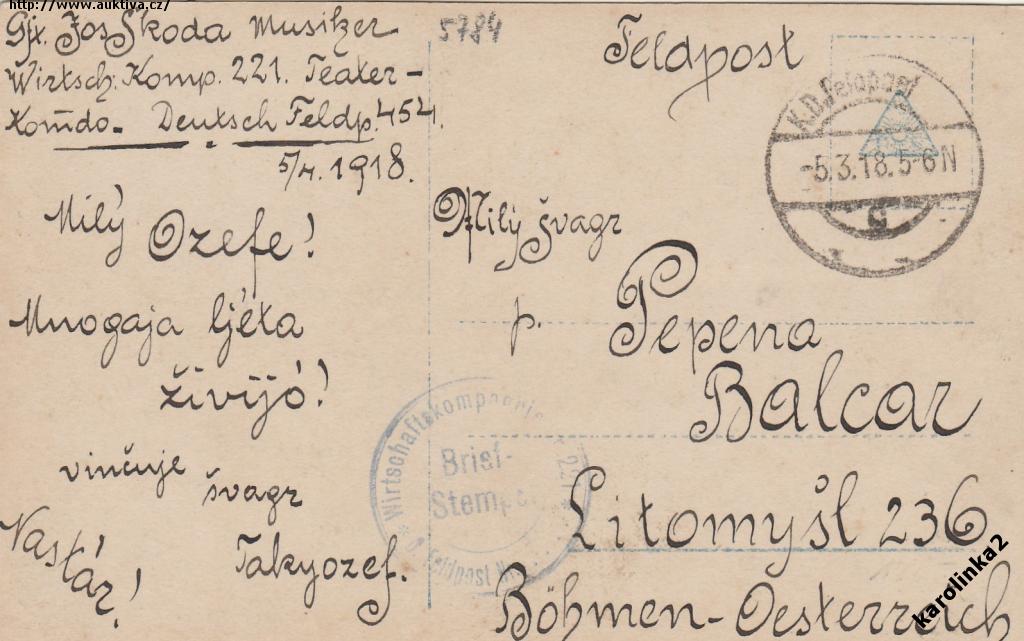 http://www.auktiva.cz/
Gfr. Jos Škoda Musiker
Wirtsch. Komp. 221. Teater-
Komdo- Deutsch Feldp. 454.
5/4. 1918.
Milý Ozefe!
Mnogaja ljéta
živijó!
vinčuje
švagr
Takyozef.
5784
Feldpost
K.D. Feldpost
-5.3.18.5-6N
c
Milý švagr
p. Pepena
Balcar
Litomyšl 236
Böhmen-Oesterreich
Wirtschaftskompagnie 221
Brief-
Stempel
Feldpost
karolinka2